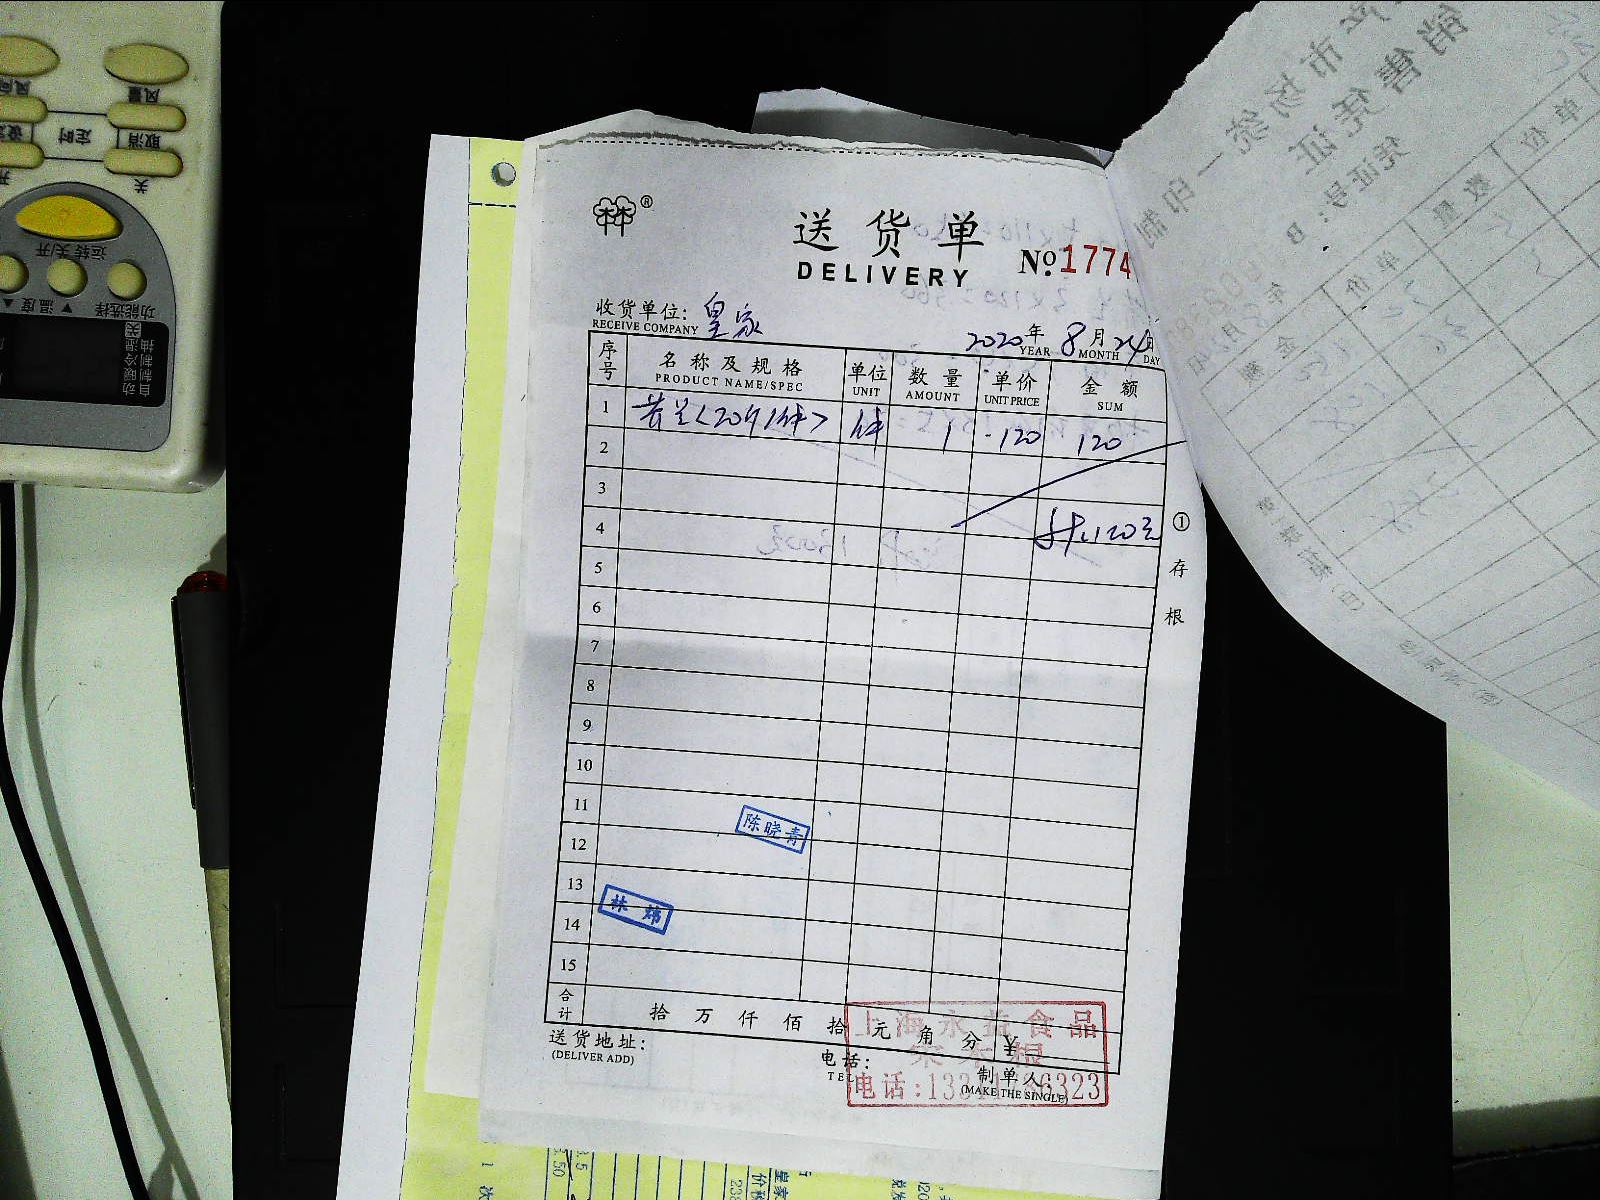 送货单
DELIVERY
№ 1774
收货单位: 皇家
RECEIVE COMPANY
2020年 8月 24日
YEAR MONTH DAY
序号 名称及规格 单位 数量 单价 金额
PRODUCT NAME/SPEC UNIT AMOUNT UNIT PRICE SUM
1 件 1 120 120
2
3
4 计:120元
5
6
7
8
9
10
11
陈晓青
12
13
林炜
14
15
合计 拾 万 仟 佰 拾 元 角 分 ¥
送货地址:
(DELIVER ADD)
电话:
TEL
制单人
(MAKE THE SINGLE)
① 存根
上海永益食品
电话:133
6323
产市场统一印制
销售凭证
凭证号:B
单位
数量
单价
金额
风量
定时
取消
关
运转 关/开
▼ 温度 ▲
功能选择
自动
制暖
制冷
抽湿